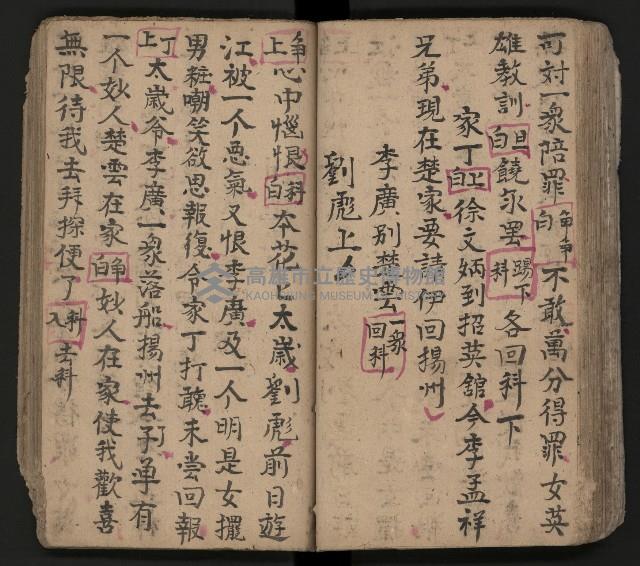 可対一衆陪罪 白 不敢萬分得罪女英
雄教訓 旦白 饒你罢 踢下科 各回科下
家丁 上白 徐文炳到招英舘今李孟祥
兄弟現在楚家要請伊回揚州
李廣別楚雲 一衆回科
劉彪上
上 心中惱恨 科白 本花上太歲劉彪前日遊
江被一个悪氣又恨李廣及一个明是女擺
男粧嘲笑欲思報復令家丁打聽未尝回報
丁上 太歲爷李廣一衆落船揚州去了单有
一个妙人楚雲在家 白 妙人在家使我歡喜
無限待我去拜探便了 科入 去科
高雄市立歷史博物館
KAOHSIUNG MUSEUM OF HISTORY